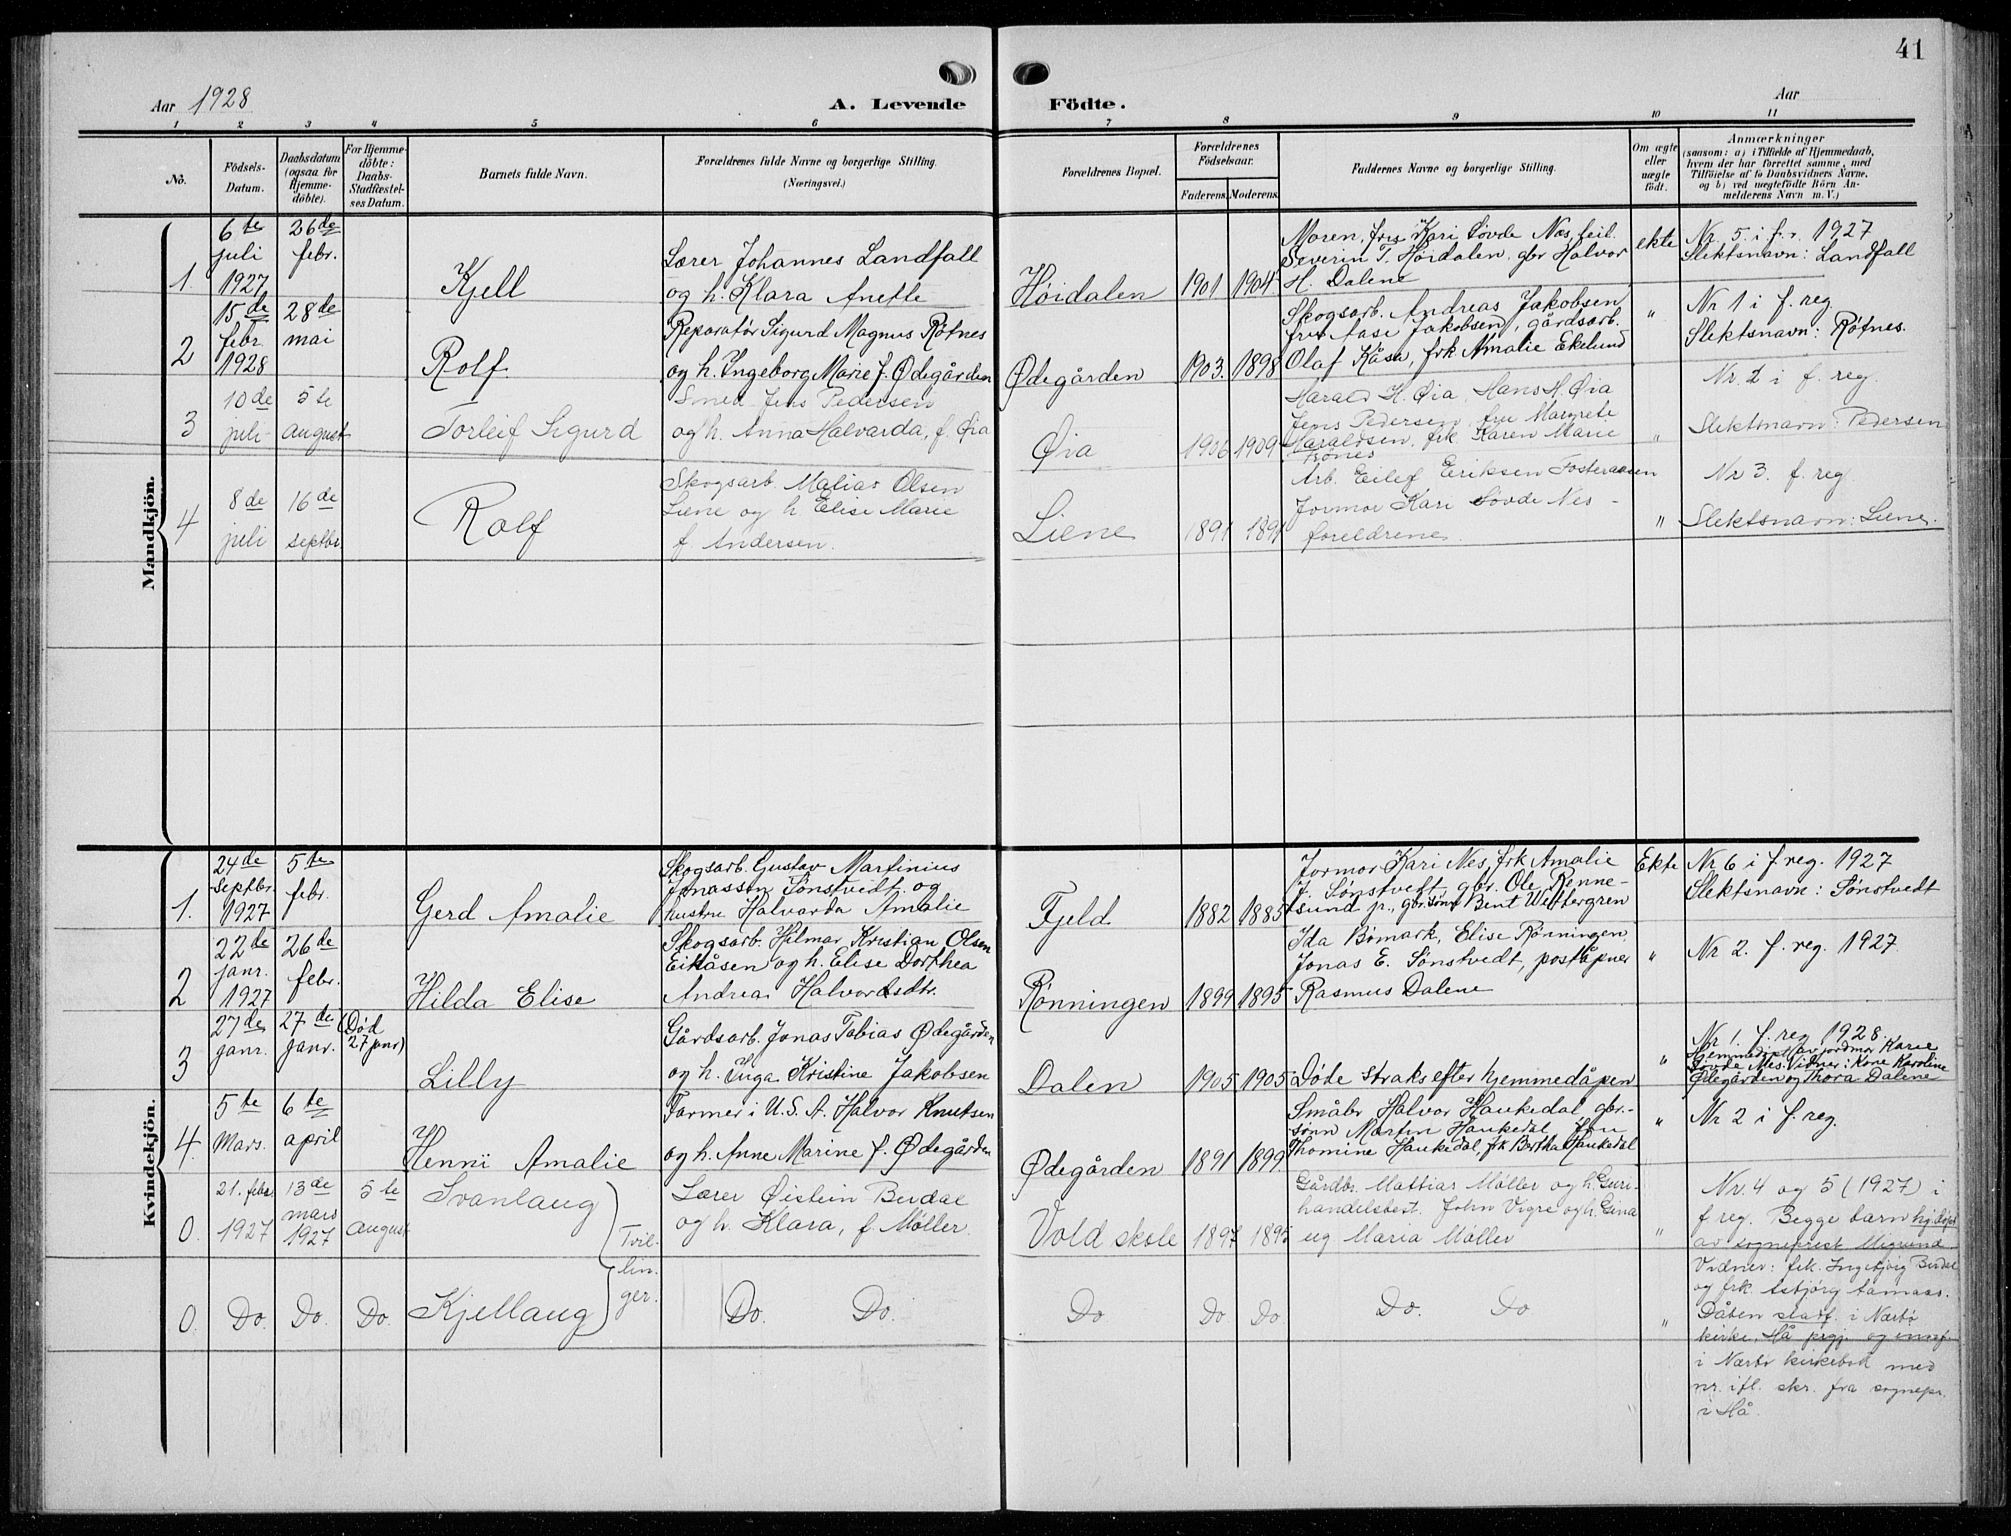 41
Aar 1928
A. Levende Födte.
Aar
1 2 3 4 5 6 7 8 9 10 11
No.
Födsels-
Datum.
Daabsdatum
(ogsaa for
Hjemme-
döbte).
For Hjemme-
döbte:
Daabs-
Stadfestel-
ses Datum.
Barnets fulde Navn.
Forældrenes fulde Navne og borgerlige Stilling.
(Næringsvei.)
Forældrenes Bopæl.
Forældrenes
Födselsaar.
Faderens. Moderens.
Faddernes Navne og borgerlige Stilling.
Om ægte
eller
uægte
födt.
Anmærkninger
(saasom: a) i Tilfælde af Hjemmedaab,
hvem der har forrettet samme, med
Tilföielse af to Daabsvidners Navne.
og b) ved uægtefödte Börn An-
melderens Navn m. V.)
Mandkjön.
1
6te
juli
1927
26de
febr.
Kjell
Lærer Johannes Landfall
og h. Klara Anette
Höidalen
1901 1904
Moren, fru Kari Løvde Nes, leil.
Severin T. Höidalen, gbr Halvor
H. Dalene
ekte
Nr. 5 i f.r. 1927
Slektsnavn: Landfall
2
15de
febr.
1928
28de
mai
Rolf
Reparatør Sigurd Magnus Røtnes
og h. Ingeborg Marie f. Ødegården
Ødegården
1903. 1898
Skogsarb. Andreas Jakobsen,
fru Aase Jakobsen, gårdsarb.
Olaf Kåsa, frk Amalie Ekelund
"
Nr 1 i f. reg
Slektsnavn: Røtnes.
3
10de
juli
5te
august
Torleif Sigurd
Smed Jens Pedersen
og h. Anna Halvarda, f. Øia
Øia
1906 1909
Harald H. Øia, Hans H. Øia
Jens Pedersen, fru Margrete
Haraldsen, frk. Karen Marie
"
Nr. 2 i f. reg.
Slektsnavn: Pedersen
4
8de
juli
16de
septbr.
Rolf
Skogsarb. Malias Olsen
Liene og h. Elise Marie
f. Andersen.
Liene
1891 1891
Arb. Eilef Eriksen Fosteraasen
Jormor Kari Løvde Nes -
foreldrene.
"
Nr 3. f. reg
Slektsnavn: Liene.
Kvindekjön.
1.
24de
septbr.
1927
5te
febr.
Gerd Amalie
Skogsarb. Gustav Martinius
Jonassen Sønstvedt og
hustru Halvarda Amalie
Fjeld
1882 1885
Jormor Kari Nes, frk Amalie
J. Sønstvedt, gbr. Ole Renne-
sund jr., gbr.sønn Bent Wettergren
Ekte
Nr 6 i f. reg. 1927
Slektsnavn: Sønstvedt
2
22de
janr.
1927
26de
febr.
Hilda Elise
Skogsarb. Hilmar Kristian Olsen
Eikåsen og h. Elise Dorthea
Andrea Halvorsdtr.
Rønningen
1899 1895
Ida Bömark, Elise Rønningen,
Jonas E. Sønstvedt, poståpner
Rasmus Dalene
"
Nr 2. f. reg. 1927
3
27de
janr.
27de
janr.
(Død
27 janr)
Lilly
Gårdsarb. Jonas Tobias Ødegården
og h. Inga Kristine Jakobsen
Dalen
1905 1905
Døde straks efter hjemmedåpen
"
Nr 1. f. reg 1928.
Hjemmedøpt av jordmor Karie
Løvde Nes. Vidner: Kone Karoline
Ødegården og Thora Dalene
4.
5te
Mars.
6te
april
Henni Amalie
Farmer i U.S.A. Halvor Knutsen
og h. Anne Marine f. Ødegården
Ødegården
1891 1899
Småbr Halvor Haukedal, gbr.-
sønn Martin Haukedal, Fru
Thomine Haukedal, frk Bertha Haukedal
"
Nr 2 i f. reg.
0.
21. febr.
1927
13de
mars
1927
5te
august
Svanlaug
Tvil-
lin-
ger.
Lærer Øistein Berdal
og h. Klara, f. Møller.
Vold skole
1897 1895
Gårdbr. Mattias Møller og h. Guri-
handelsbest. John Vigre og h. Gina
ug Maria Møller
"
Nr. 4 og 5 (1927) i
f reg. Begge barn hj.døpt
av sogneprest Migrund.
Vidner: frk. Ingebjørg Berdal
og frk. Asbjørg Aamaas.
Dåben stadf. i Nærbø
kirke, Hå prgj. og innf.
i Nærbø kirkebok med
nr. ifl. skr. fra sognepr.
i Hå.
0.
Do. Do. Do.
Kjellaug
Do. Do.
Do
Do Do.
Do. Do
"